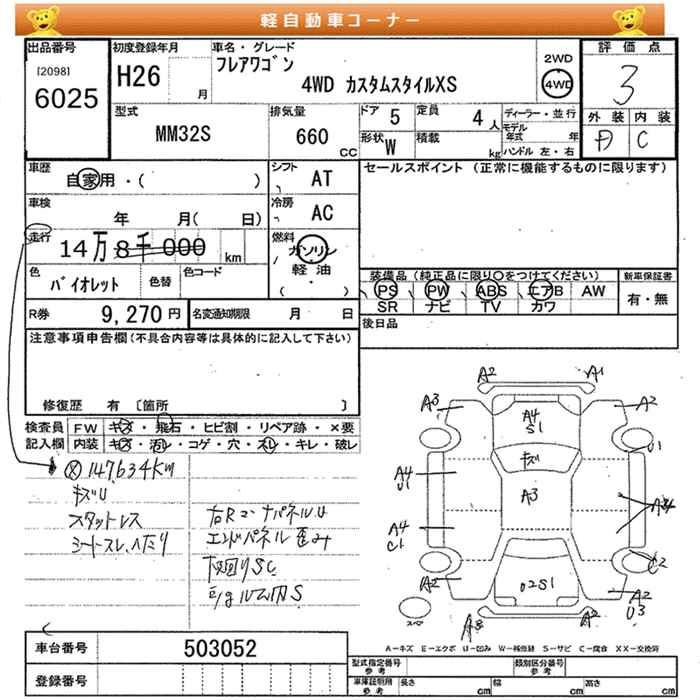 軽自動車コーナー
出品番号
[2098]
6025
初度登録年月
H26
月
車名・グレード
フレアワゴン
4WD カスタムスタイルXS
2WD
4WD
評価点
3
型式
MM32S
排気量
660
CC
ドア
5
定員
4
人
形状
W
積載
kg
ディーラー・並行
モデル
年式
年
ハンドル 左・右
外装
内装
C
車歴
自家用・( )
シフト
AT
車検
年 月( 日)
冷房
AC
走行
14万8千000
km
燃料
ガソリン
軽油
・
( )
色
バイオレット
色替
色コード
R券
9,270円
名変通知期限
月 日
セールスポイント (正常に機能するものに限ります)
装備品 (純正品に限り○をつけてください)
新車保証書
PS PW ABS エアB AW
SR ナビ TV カワ
有・無
後日品
注意事項申告欄(不具合内容等は具体的に記入して下さい)
修復歴 有 〔箇所 〕
検査員
記入欄
FW キズ・飛石・ヒビ割・リペア跡・×要
内装 キズ・汚レ・コゲ・穴・スレ・キレ・破レ
147634Km
キズU
スタットレス
シートスレ、ヘタリ
右Rコーナパネルu
エンドパネル歪み
下廻りSC
Eg ルーム内S
A2
A1
A3
A2
A4
S1
キズ
U1
A4
U1
A3
A4
C1
C2
A2
U2S1
A2
U3
スペ
A-キズ E-エクボ U-凹み W-補修跡 S-サビ C-腐食 XX-交換済
車台番号
503052
登録番号
型式指定番号
参考
類別区分番号
参考
車庫証明用
参考
長さ
cm
幅
cm
高さ
cm